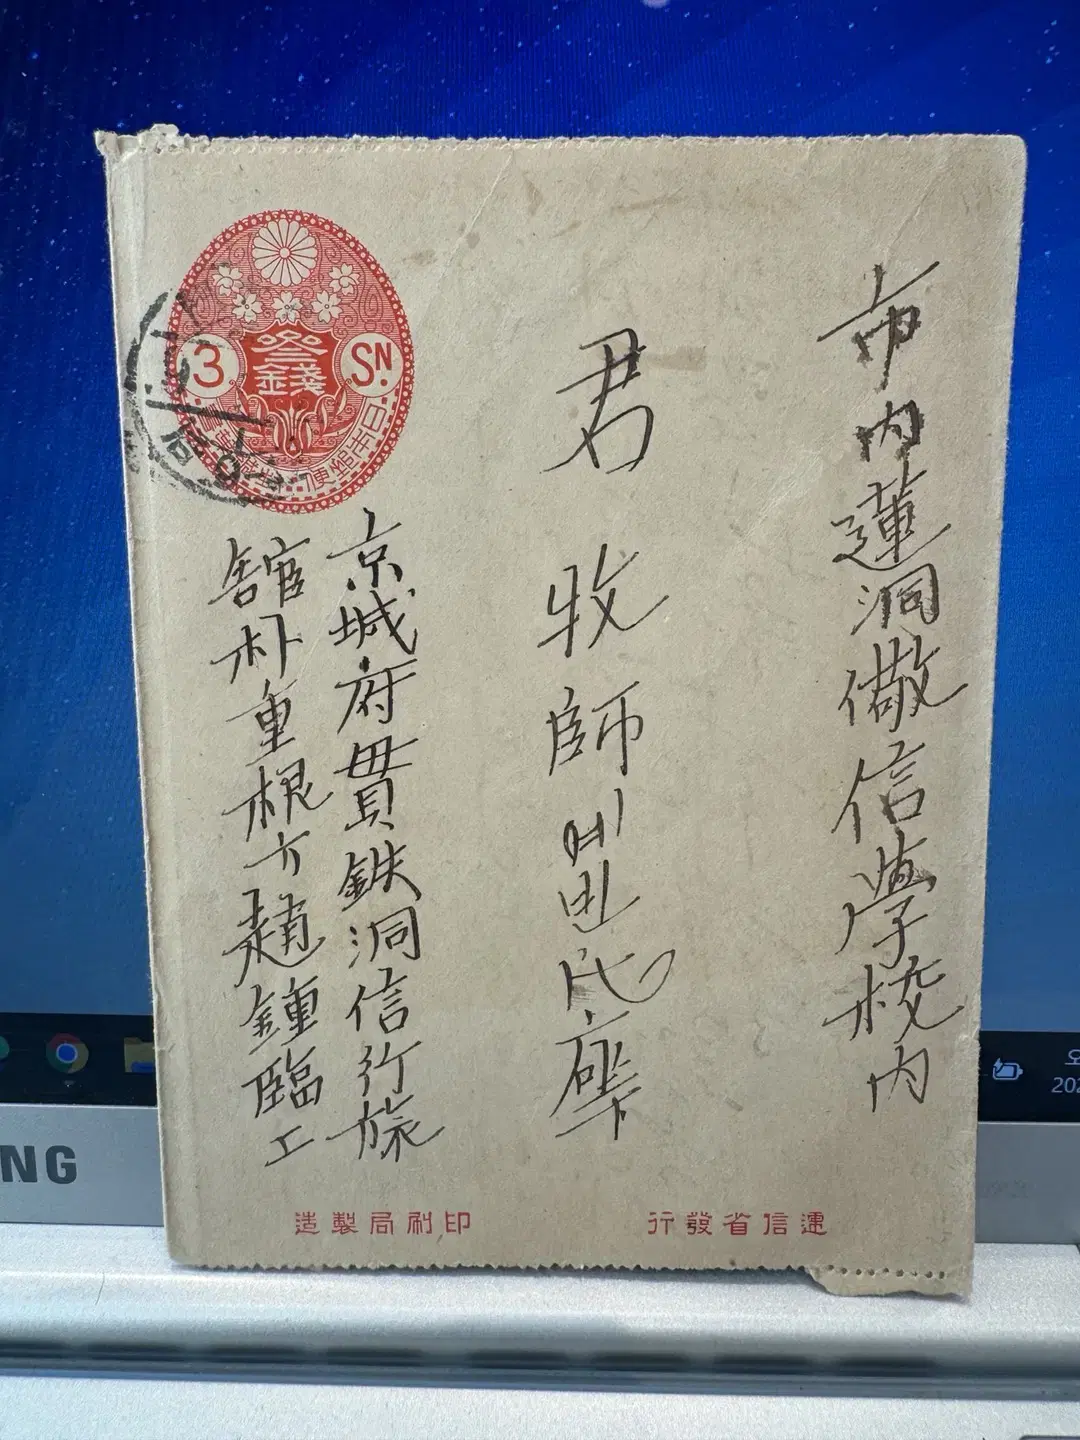 市內蓮洞儆信學校內
君 牧師 예빈氏 座下
京城府貫鉄洞信行旅
舘朴重根方趙鍾臨上
3
參錢
SN.
日本郵便
遞信省發行
印刷局製造
NG